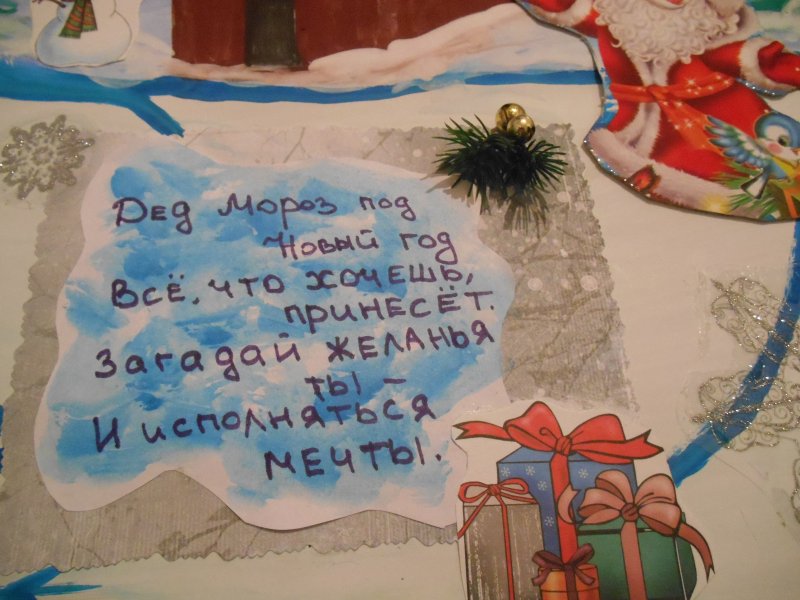 Дед Мороз под
Новый год
Всё, что хочешь,
принесёт.
Загадай желанья
ты –
И исполняться
мечты.